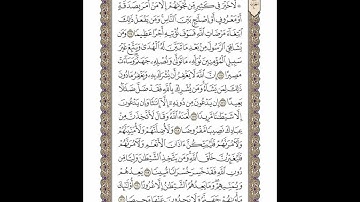 لَّا خَيْرَ فِي كَثِيرٍ مِّن نَّجْوَىٰهُمْ إِلَّا مَنْ أَمَرَ بِصَدَقَةٍ
أَوْ مَعْرُوفٍ أَوْ إِصْلَٰحٍۭ بَيْنَ ٱلنَّاسِ ۚ وَمَن يَفْعَلْ ذَٰلِكَ
ٱبْتِغَآءَ مَرْضَاتِ ٱللَّهِ فَسَوْفَ نُؤْتِيهِ أَجْرًا عَظِيمًا ۝ وَمَن
يُشَاقِقِ ٱلرَّسُولَ مِنۢ بَعْدِ مَا تَبَيَّنَ لَهُ ٱلْهُدَىٰ وَيَتَّبِعْ غَيْرَ
سَبِيلِ ٱلْمُؤْمِنِينَ نُوَلِّهِۦ مَا تَوَلَّىٰ وَنُصْلِهِۦ جَهَنَّمَ ۖ وَسَآءَتْ
مَصِيرًا ۝ إِنَّ ٱللَّهَ لَا يَغْفِرُ أَن يُشْرَكَ بِهِۦ وَيَغْفِرُ مَا دُونَ
ذَٰلِكَ لِمَن يَشَآءُ ۚ وَمَن يُشْرِكْ بِٱللَّهِ فَقَدْ ضَلَّ ضَلَٰلًۢا
بَعِيدًا ۝ إِن يَدْعُونَ مِن دُونِهِۦٓ إِلَّآ إِنَٰثًا وَإِن يَدْعُونَ
إِلَّا شَيْطَٰنًا مَّرِيدًا ۝ لَّعَنَهُ ٱللَّهُ ۘ وَقَالَ لَأَتَّخِذَنَّ مِنْ
عِبَادِكَ نَصِيبًا مَّفْرُوضًا ۝ وَلَأُضِلَّنَّهُمْ وَلَأُمَنِّيَنَّهُمْ
وَلَءَامُرَنَّهُمْ فَلَيُبَتِّكُنَّ ءَاذَانَ ٱلْأَنْعَٰمِ وَلَءَامُرَنَّهُمْ
فَلَيُغَيِّرُنَّ خَلْقَ ٱللَّهِ ۚ وَمَن يَتَّخِذِ ٱلشَّيْطَٰنَ وَلِيًّا مِّن
دُونِ ٱللَّهِ فَقَدْ خَسِرَ خُسْرَانًا مُّبِينًا ۝ يَعِدُهُمْ
وَيُمَنِّيهِمْ ۖ وَمَا يَعِدُهُمُ ٱلشَّيْطَٰنُ إِلَّا غُرُورًا ۝ أُو۟لَٰٓئِكَ
مَأْوَىٰهُمْ جَهَنَّمُ وَلَا يَجِدُونَ عَنْهَا مَحِيصًا